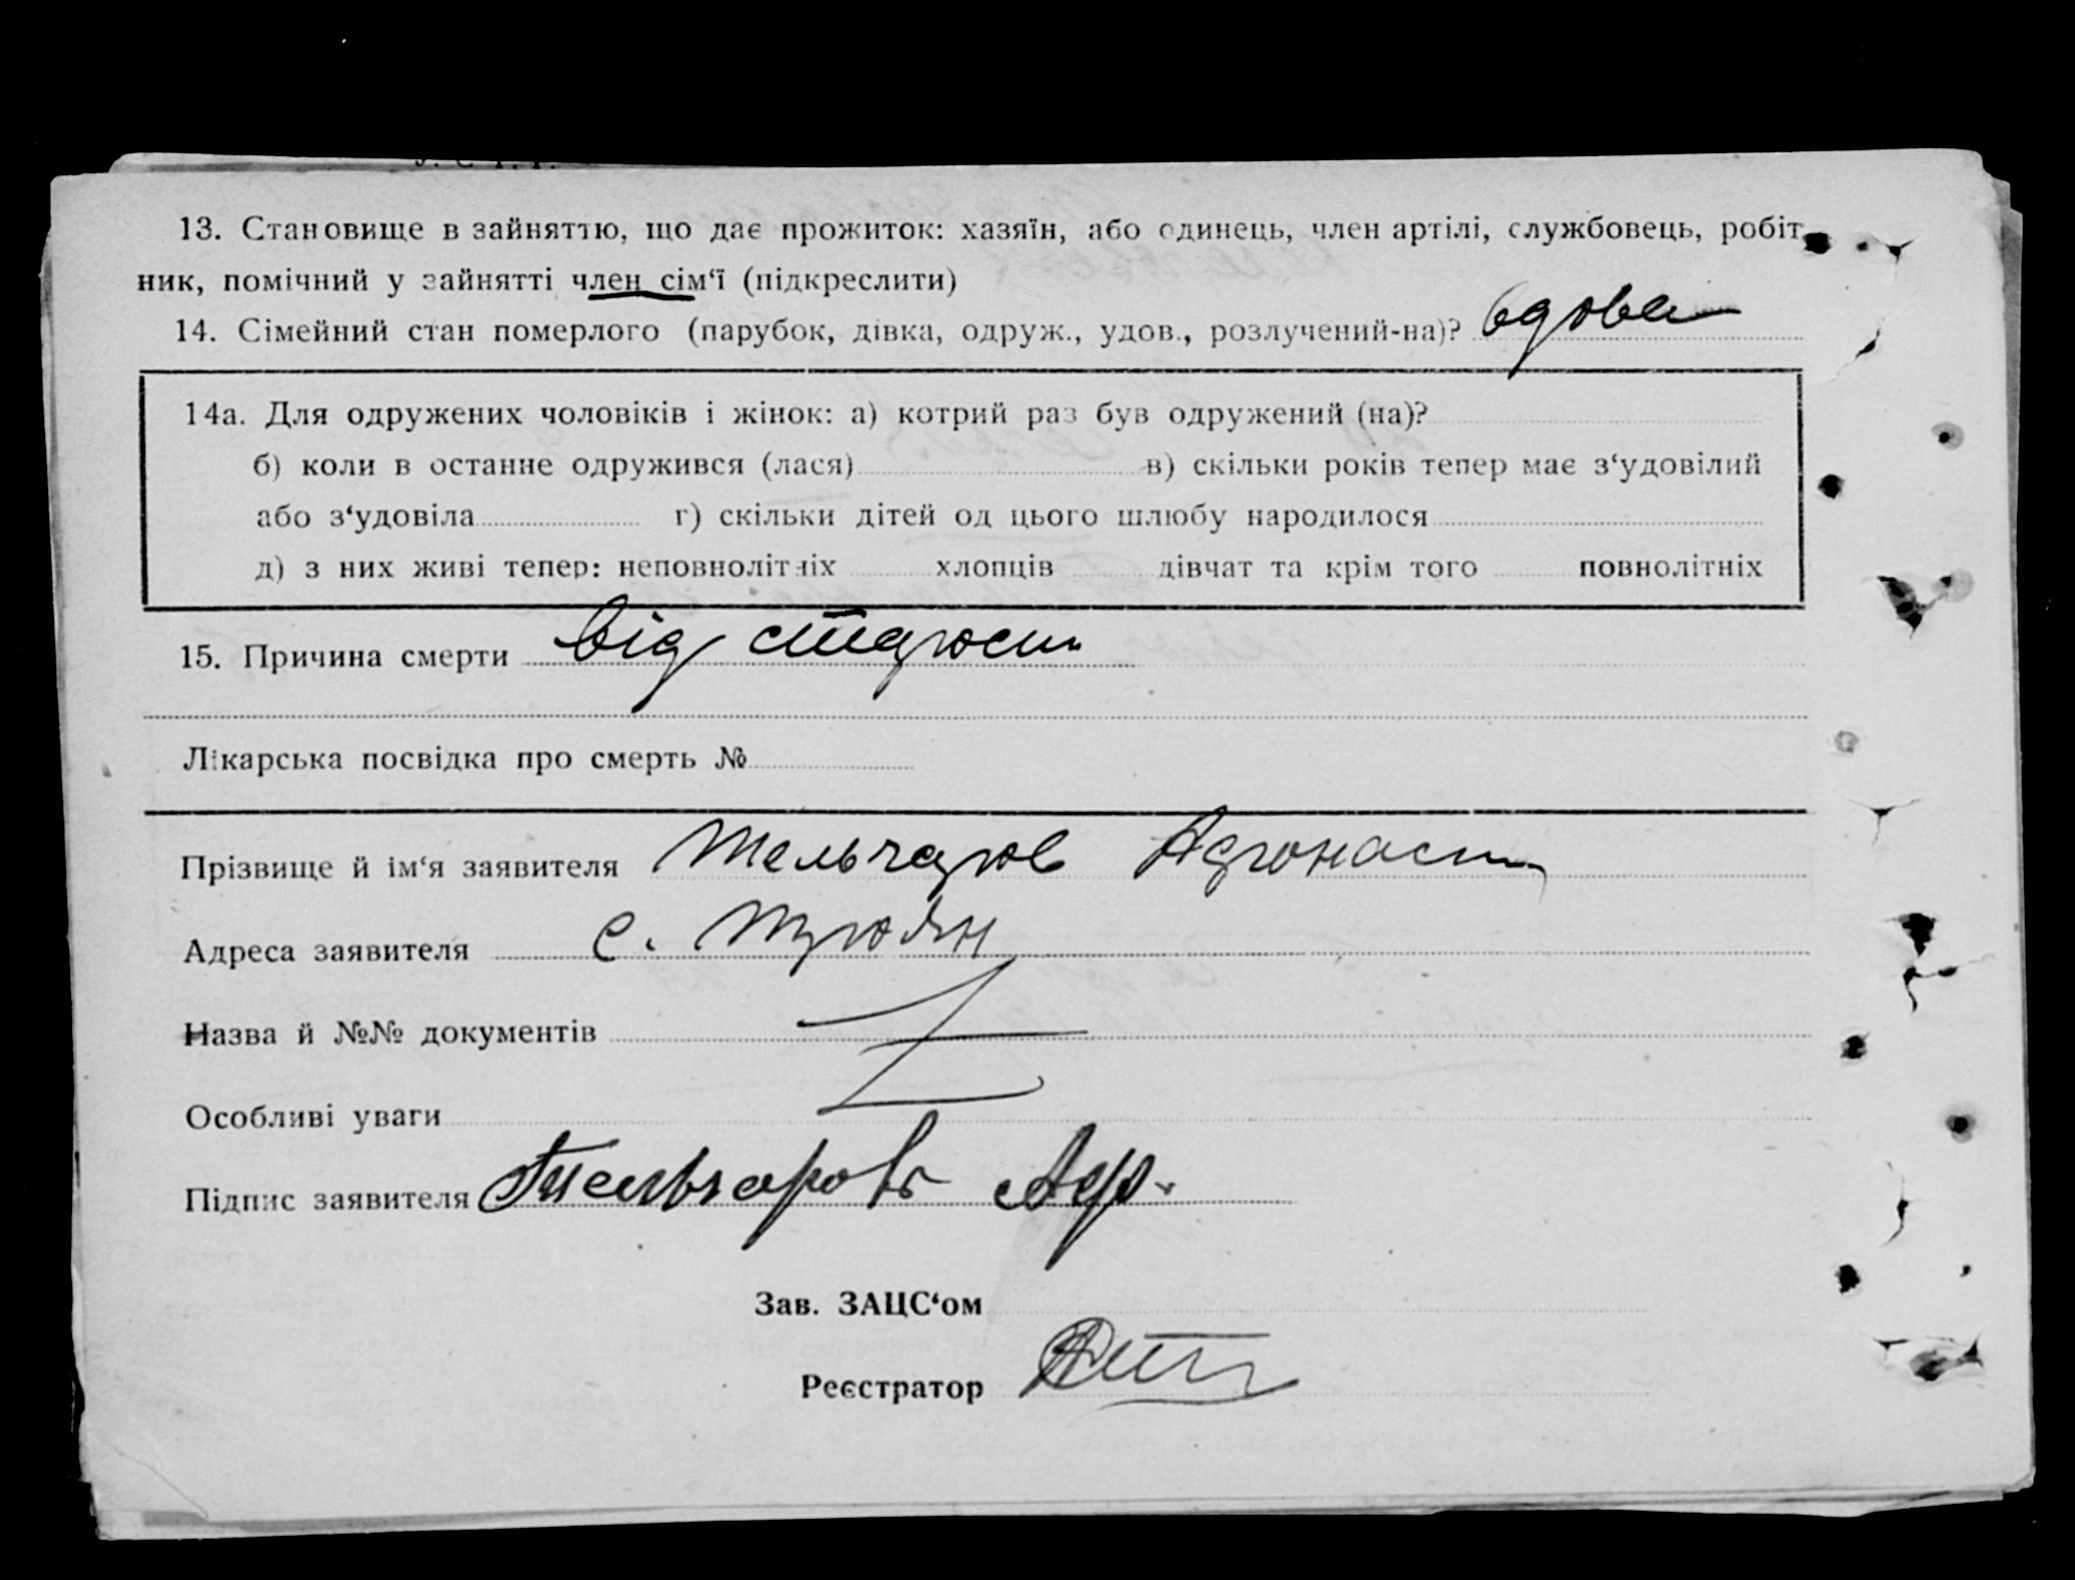 13. Становище в зайняттю, що дає прожиток: хазяїн, або одинець, член артілі, службовець, робіт
ник, помічний у зайнятті член сім‘ї (підкреслити)
14. Сімейний стан померлого (парубок, дівка, одруж., удов., розлучений-на)? вдова
14а. Для одружених чоловіків і жінок: а) котрий раз був одружений (на)?
б) коли в останнє одружився (лася) в) скільки років тепер має з‘удовілий
або з‘удовіла г) скільки дітей од цього шлюбу народилося
д) з них живі тепер: неповнолітніх хлопців дівчат та крім того повнолітніх
15. Причина смерти від старости
Лікарська посвідка про смерть №
Прізвище й ім‘я заявителя Тельчаров
Адреса заявителя с. Троян
Назва й №№ документів
Особливі уваги
Підпис заявителя Тельчаровъ Аф.
Зав. ЗАЦС‘ом
Реєстратор